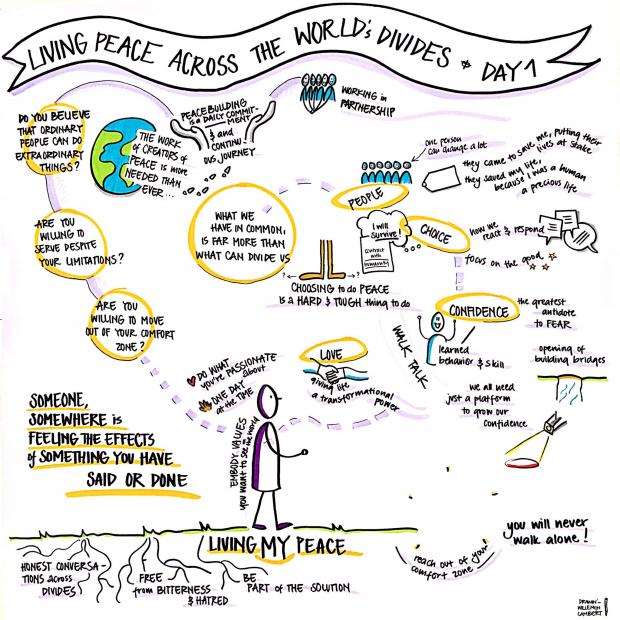 LIVING PEACE ACROSS THE WORLD'S DIVIDES DAY 1
DO YOU BELIEVE
THAT ORDINARY
PEOPLE CAN DO
EXTRAORDINARY
THINGS?
THE WORK
OF CREATORS OF
PEACE is more
NEEDED THAN
EVER...
PEACEBUILDING
is a DAILY COMMIT-
MENT
& and
CONTINU-
OUS JOURNEY
WORKING in
PARTNERSHIP
ARE YOU
WILLING TO
SERVE DESPITE
YOUR LIMITATIONS?
ARE YOU
WILLING TO MOVE
OUT OF YOUR COMFORT
ZONE?
WHAT WE
HAVE IN COMMON,
IS FAR MORE THAN
WHAT CAN DIVIDE US
one person
can change a lot
PEOPLE
they came to save me, putting their
lives at stake
they saved my life,
because I was a human
a precious life
I will
Survive!
contract
with
humanity
CHOICE
how we
react & respond
focus on the good
? ?
CHOOSING to do PEACE
is a HARD & TOUGH thing to do
CONFIDENCE
the greatest
antidote
to FEAR
learned
behavior & skill
WALK TALK
opening of
building bridges
we all need
just a platform
to grow our
confidence
LOVE
giving life
a transformational
power
DO WHAT
you're PASSIONATE
about
ONE DAY
at the TIME
EMBODY VALUES
you want to see in the world
SOMEONE,
SOMEWHERE is
FEELING THE EFFECTS
of SOMETHING YOU HAVE
SAID OR DONE
LIVING MY PEACE
HONEST CONVERSA-
TIONS across
DIVIDES
FREE
from BITTERNESS
& HATRED
BE
PART OF THE SOLUTION
reach out of your
comfort zone
you will never
walk alone!
DRAWN:
WILLEMIJN
LAMBERT